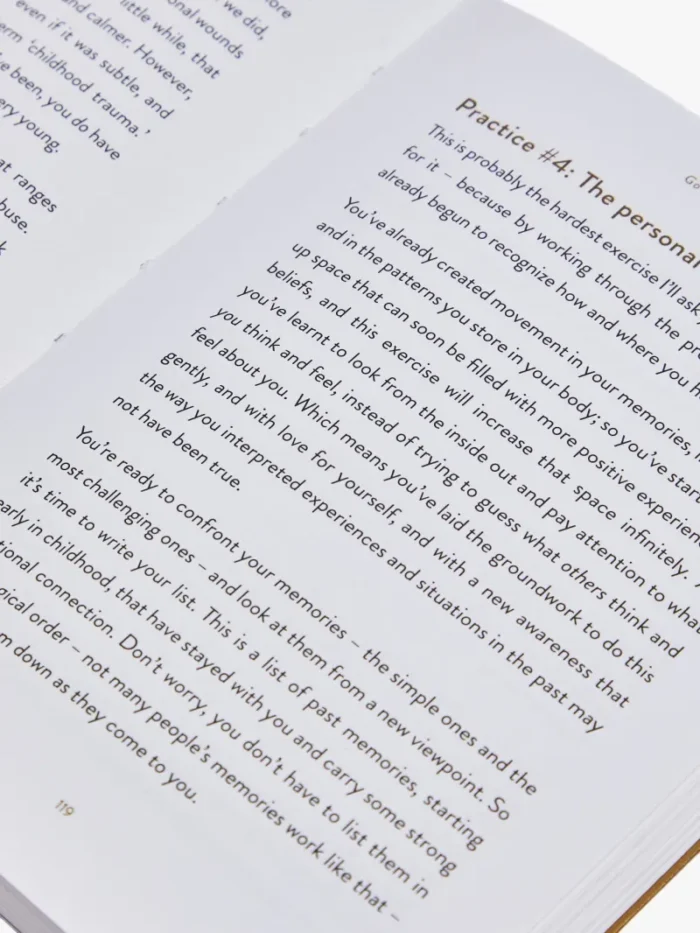 we did,
wounds
little while, that
and calmer. However,
even if it was subtle, and
'childhood trauma.'
been, you do have
young.
ranges
Practice #4: The personal
This is probably the hardest exercise I'll ask
for it – because by working through the
already begun to recognize how and where you
You've already created movement in your memories,
and in the patterns you store in your body; so you've
up space that can soon be filled with more positive
beliefs, and this exercise will increase that space infinitely.
you've learnt to look from the inside out and pay attention to what
you think and feel, instead of trying to guess what others think and
feel about you. Which means you've laid the groundwork to do this
gently, and with love for yourself, and with a new awareness that
the way you interpreted experiences and situations in the past may
not have been true.
You're ready to confront your memories – the simple ones and the
most challenging ones – and look at them from a new viewpoint. So
it's time to write your list. This is a list of past memories, starting
early in childhood, that have stayed with you and carry some strong
connection. Don't worry, you don't have to list them in
order – not many people's memories work like that –
down as they come to you.
119